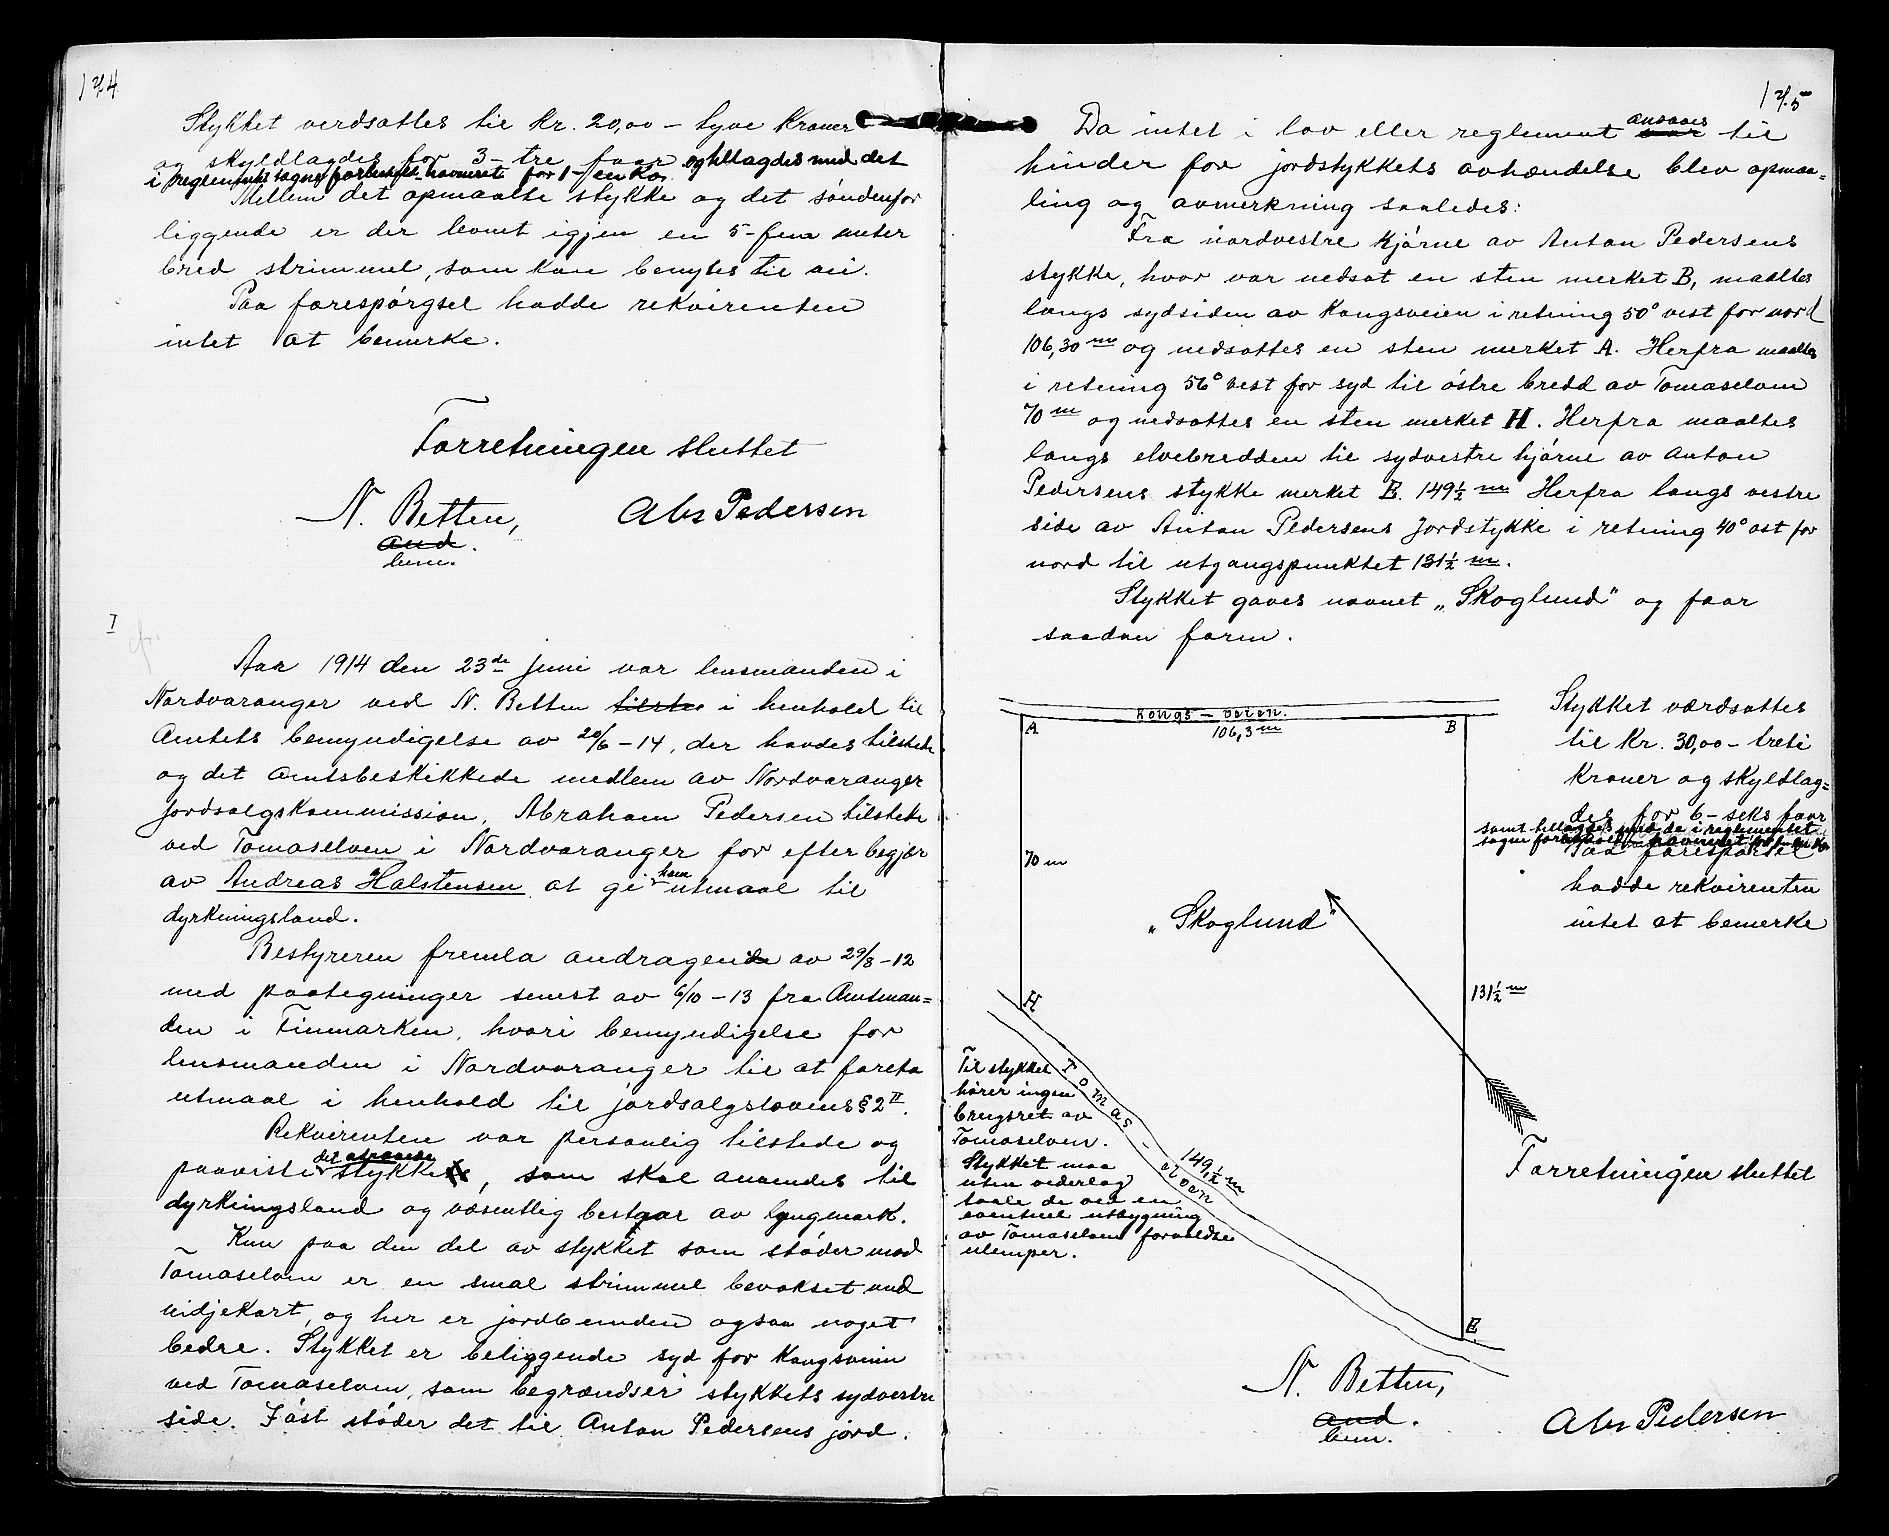 174
Stykket verdsattes til kr. 20,00 – tyve kroner
og skyldlagdes for 3 – tre faar og tillagdes med det
i reglementets tagne forbehold havneret for 1 – en ko.
Mellem det opmaalte stykke og det søndenfor
liggende er der levnet igjen en 5 – fem meter
bred strimmel, som kan benyttes til vei.
Paa forespørgsel hadde rekvirenten
intet at bemerke.
Forretningen sluttet
N. Betten,
Abr Pedersen
aud.
bem.
I
Aar 1914 den 23de juni var lensmanden i
Nordvaranger ved N. Betten tilste i henhold til
Amtets bemyndigelse av 20/6 – 14, der havdes tilstede
og det amtsbeskikkede medlem av Nordvaranger
jordsalgskommission, Abraham Pedersen tilstede
ved Tomaselven i Nordvaranger for efter begjær
av Andreas Halstensen at gi ham utmaal til
dyrkningsland.
Bestyreren fremla andragende av 29/8 – 12
med paategninger senest av 6/10 – 13 fra Amtman=
den i Finmarken, hvori bemyndigelse for
lensmanden i Nordvaranger til at foreta
utmaal i henhold til jordsalgslovens § 2 II.
Rekvirenten var personlig tilstede og
paaviste det attraaede stykke, som skal anvendes til
dyrkningsland og væsentlig bestaar av lyngmark.
Kun paa den del av stykket som støder mod
Tomaselven er en smal strimmel bevokset med
vidjekart, og her er jordbunden ogsaa noget
bedre. Stykket er beliggende syd for Kongsveien
ved Tomaselven, som begrændser stykkets sydvestre
side. I øst støder det til Anton Pedersens jord.
175
Da intet i lov eller reglement ansaaes var til
hinder for jordstykkets avhændelse blev opmaa=
ling og avmerkning saaledes:
Fra nordvestre hjørne av Anton Pedersens
stykke, hvor var nedsat en sten merket B, maaltes
langs sydsiden av Kongsveien i retning 50° vest for nord
106,30 m og nedsattes en sten merket A. Herfra maaltes
i retning 56° vest for syd til østre bredd av Tomaselven
70 m og nedsattes en sten merket H. Herfra maaltes
langs elvebredden til sydvestre hjørne av Anton
Pedersens stykke merket E. 149½ m Herfra langs vestre
side av Anton Pedersens Jordstykke i retning 40° ost for
nord til utgangspunktet 131½ m.
Stykket gaves navnet „Skoglund" og faar
saadan form.
Kongs – veien.
A
106,3 m
B
70 m
„Skoglund"
131½ m
H
Tomas – elven
149,½ m
E.
Stykket værdsattes
til Kr. 30,00 – treti
kroner og skyldlag=
des for 6 – seks faar
samt tillagdes med de i reglementet
tagne forbehold havneret for 1 – en ko
Paa forespørsel
hadde rekvirenten
intet at bemerke
Til stykket
hører ingen
brugsret av
Tomaselven.
Stykket maa
uten vederlag
taale de ved en
eventuel utbygning
av Tomaselven forvoldte
ulemper.
Forretningen sluttet
N. Betten,
aud.
bem.
Abr Pedersen